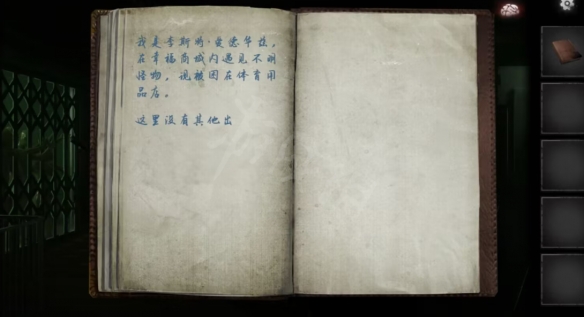 我是李斯明·爱德华兹。
在幸福商城内遇见不明
怪物，现被困在体育用
品店。
这里没有其他出